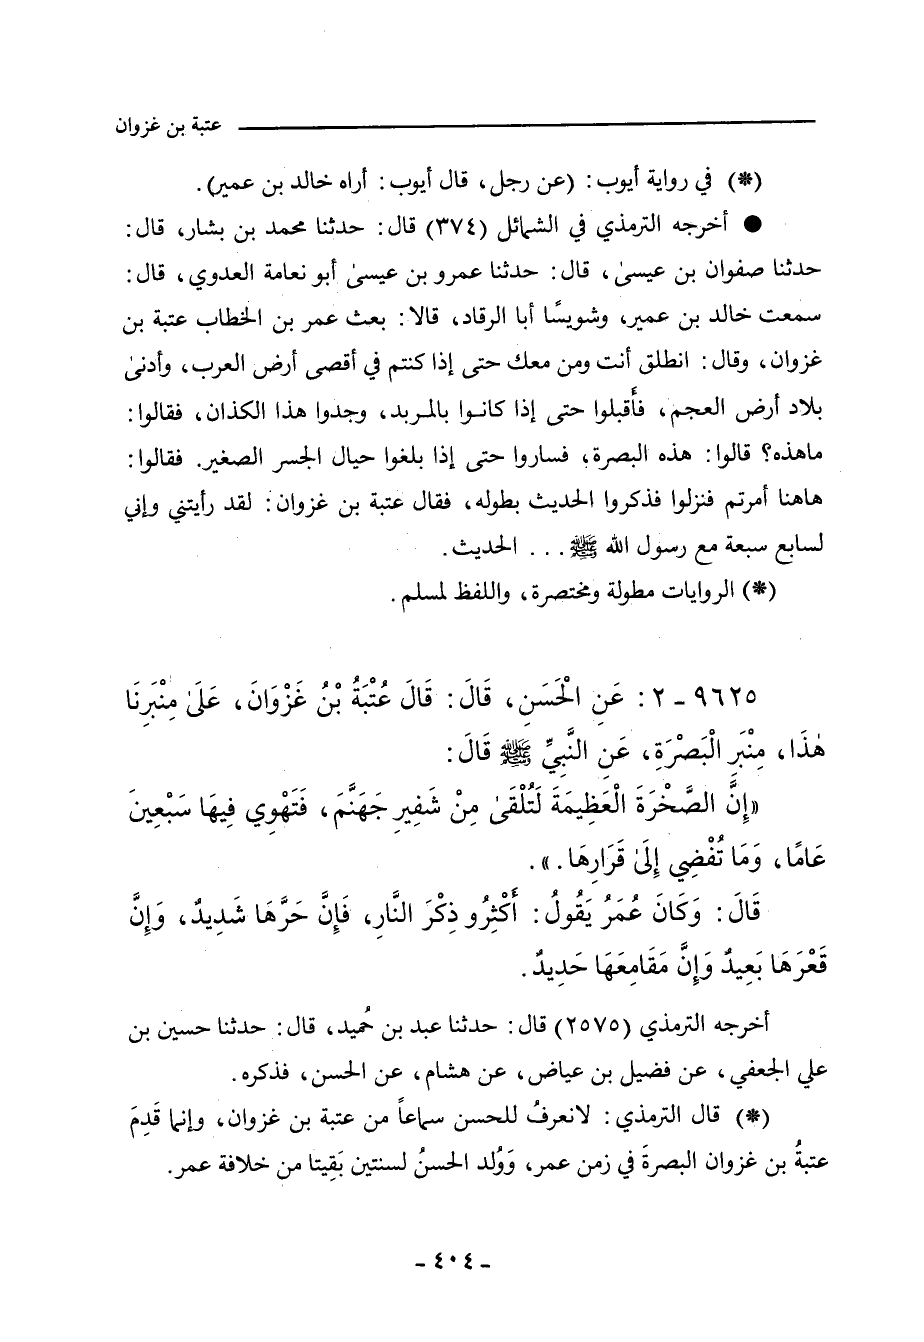 عتبة بن غزوان
(*) في رواية أيوب: (عن رجل، قال أيوب: أراه خالد بن عمير).
● أخرجه الترمذي في الشمائل (٣٧٤) قال: حدثنا محمد بن بشار، قال:
حدثنا صفوان بن عيسىٰ، قال: حدثنا عمرو بن عيسىٰ أبو نعامة العدوي، قال:
سمعت خالد بن عمير، وشويسًا أبا الرقاد، قالا: بعث عمر بن الخطاب عتبة بن
غزوان، وقال: انطلق أنت ومن معك حتى إذا كنتم في أقصى أرض العرب، وأدنىٰ
بلاد أرض العجم، فأَقبلوا حتى إذا كانوا بالمربد، وجدوا هذا الكذان، فقالوا:
ماهذه؟ قالوا: هذه البصرة، فساروا حتى إذا بلغوا حيال الجسر الصغير. فقالوا:
هاهنا أمرتم فنزلوا فذكروا الحديث بطوله، فقال عتبة بن غزوان: لقد رأيتني وإني
لسابع سبعة مع رسول الله ﷺ... الحديث.
(*) الروايات مطولة ومختصرة، واللفظ لمسلم.
٩٦٢٥ - ٢: عَنِ الْحَسَنِ، قَالَ: قَالَ عُتْبَةُ بْنُ غَزْوَانَ، عَلَىٰ مِنْبَرِنَا
هٰذَا، مِنْبَرِ الْبَصْرَةِ، عَنِ النَّبِيِّ ﷺ قَالَ:
«إِنَّ الصَّخْرَةَ الْعَظِيمَةَ لَتُلْقَىٰ مِنْ شَفِيرِ جَهَنَّمَ، فَتَهْوِي فِيهَا سَبْعِينَ
عَامًا، وَمَا تُفْضِي إِلَىٰ قَرَارِهَا.».
قَالَ: وَكَانَ عُمَرُ يَقُولُ: أَكْثِرُو ذِكْرَ النَّارِ، فَإِنَّ حَرَّهَا شَدِيدٌ، وَإِنَّ
قَعْرَهَا بَعِيدٌ وَإِنَّ مَقَامِعَهَا حَدِيدٌ.
أخرجه الترمذي (٢٥٧٥) قال: حدثنا عبد بن حُميد، قال: حدثنا حسين بن
علي الجعفي، عن فضيل بن عياض، عن هشام، عن الحسن، فذكره.
(*) قال الترمذي: لانعرفُ للحسن سماعاً من عتبة بن غزوان، وإنما قَدِمَ
عتبةُ بن غزوان البصرةَ في زمن عمر، وَوُلد الحسنُ لسنتين بَقِيتا من خلافة عمر.
- ٤٠٤ -